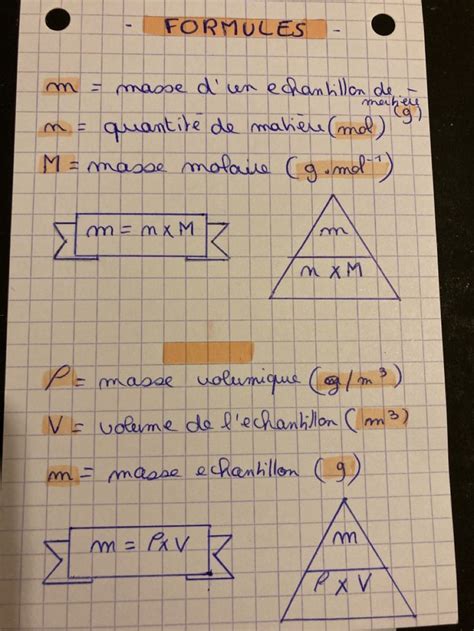 - FORMULES -
m = masse d'un echantillon de matière (g)
n = quantité de matière (mol)
M = masse molaire (g.mol⁻¹)
m = n x M
m
n x M
ρ = masse volumique (g/m³)
V = volume de l'echantillon (m³)
m = masse echantillon (g)
m = ρ x V
m
ρ x V